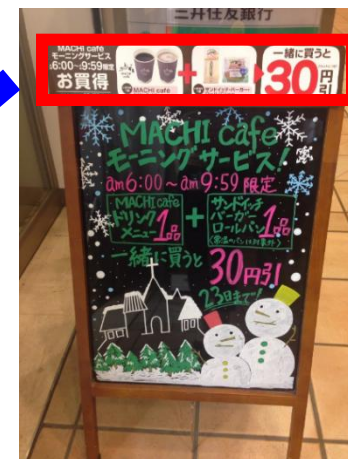 三井住友銀行
MACHI café
モーニングサービス
6:00~9:59限定
お買得
MACHI café
+
サンドイッチ・バーガー
一緒に買うと
30円引
MACHI cafe
モーニングサービス!
am6:00~am9:59限定
MACHI cafe
ドリンク
メニュー1品
+
サンドイッチ
バーガー
ロールパン1品
一緒に買うと
30円引
23日まで!